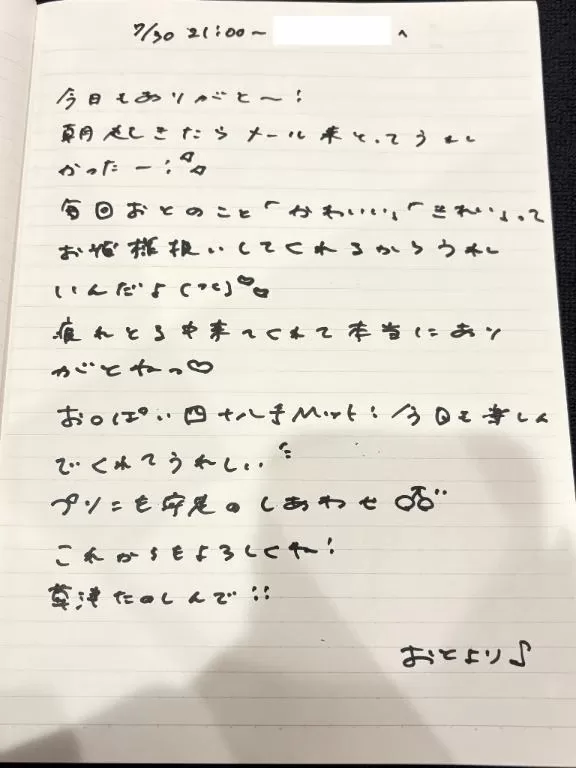 7/30 21:00～ へ
今日もありがと～!
朝起きたらメール来とってうれし
かったー!
毎回おとのこと「かわいい」「きれい」って
お姫様扱いしてくれるからうれし
いんだよ
疲れとる中来てくれて本当にあり
がとねっ♡
おっぱい四 手 ! 今日も楽しん
でくれてうれしい
プリンも安定のしあわせ
これからもよろしくね!
草津たのしんで!!
おとより♪